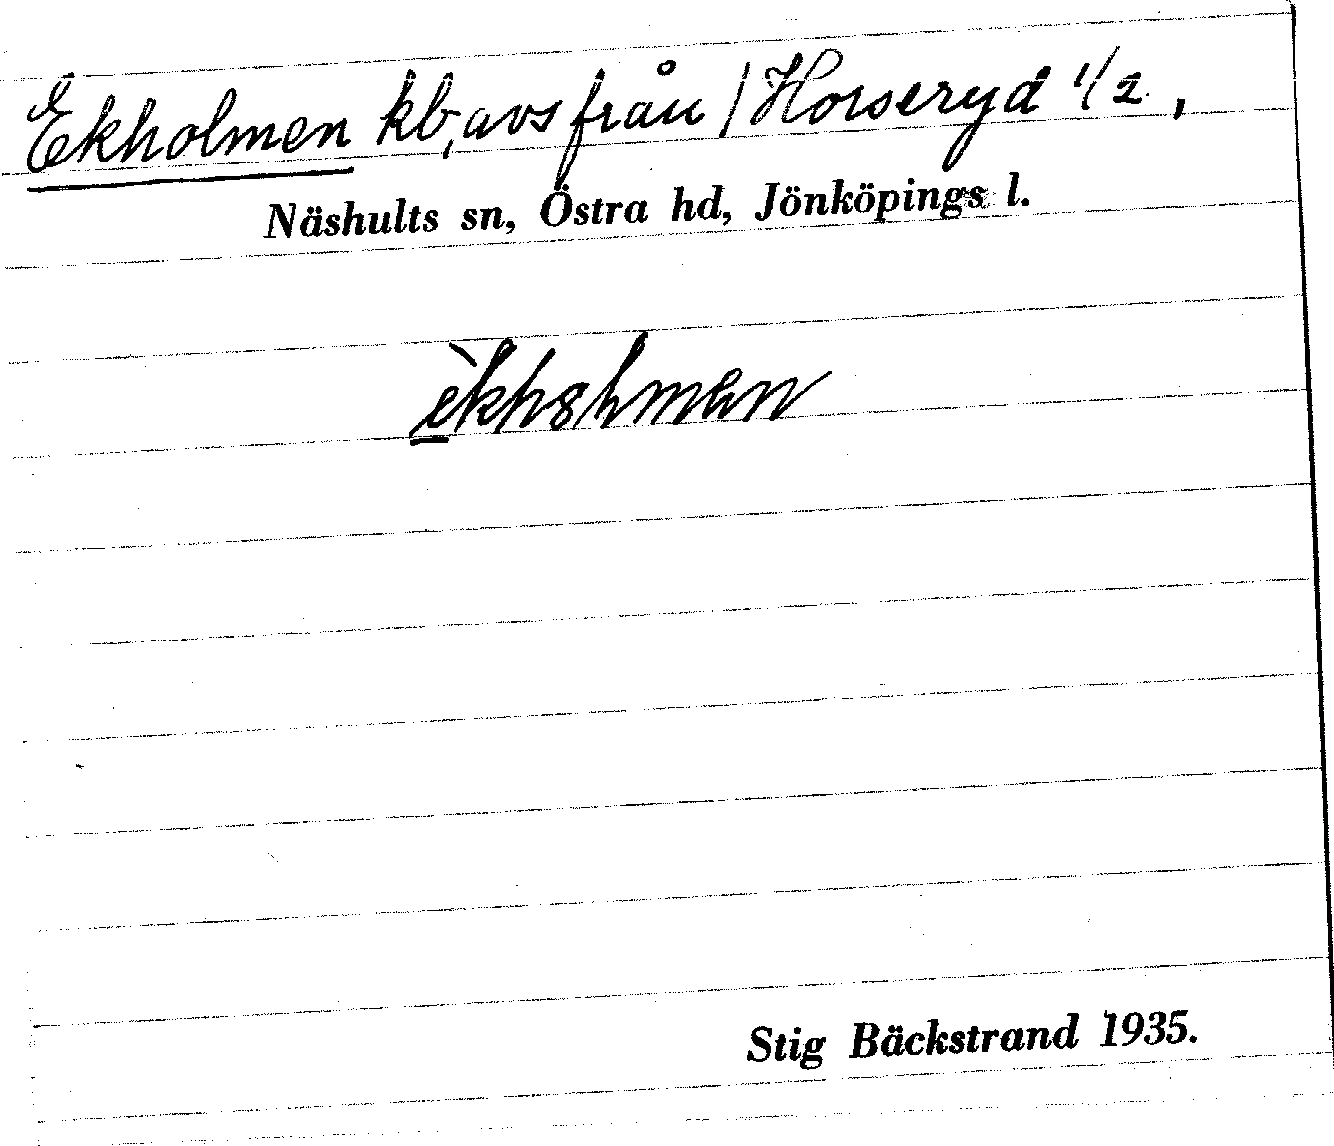 Ekholmen kb, avs från / Horseryd 1/2,
Näshults sn, Östra hd, Jönköpings l.
Stig Bäckstrand 1935.